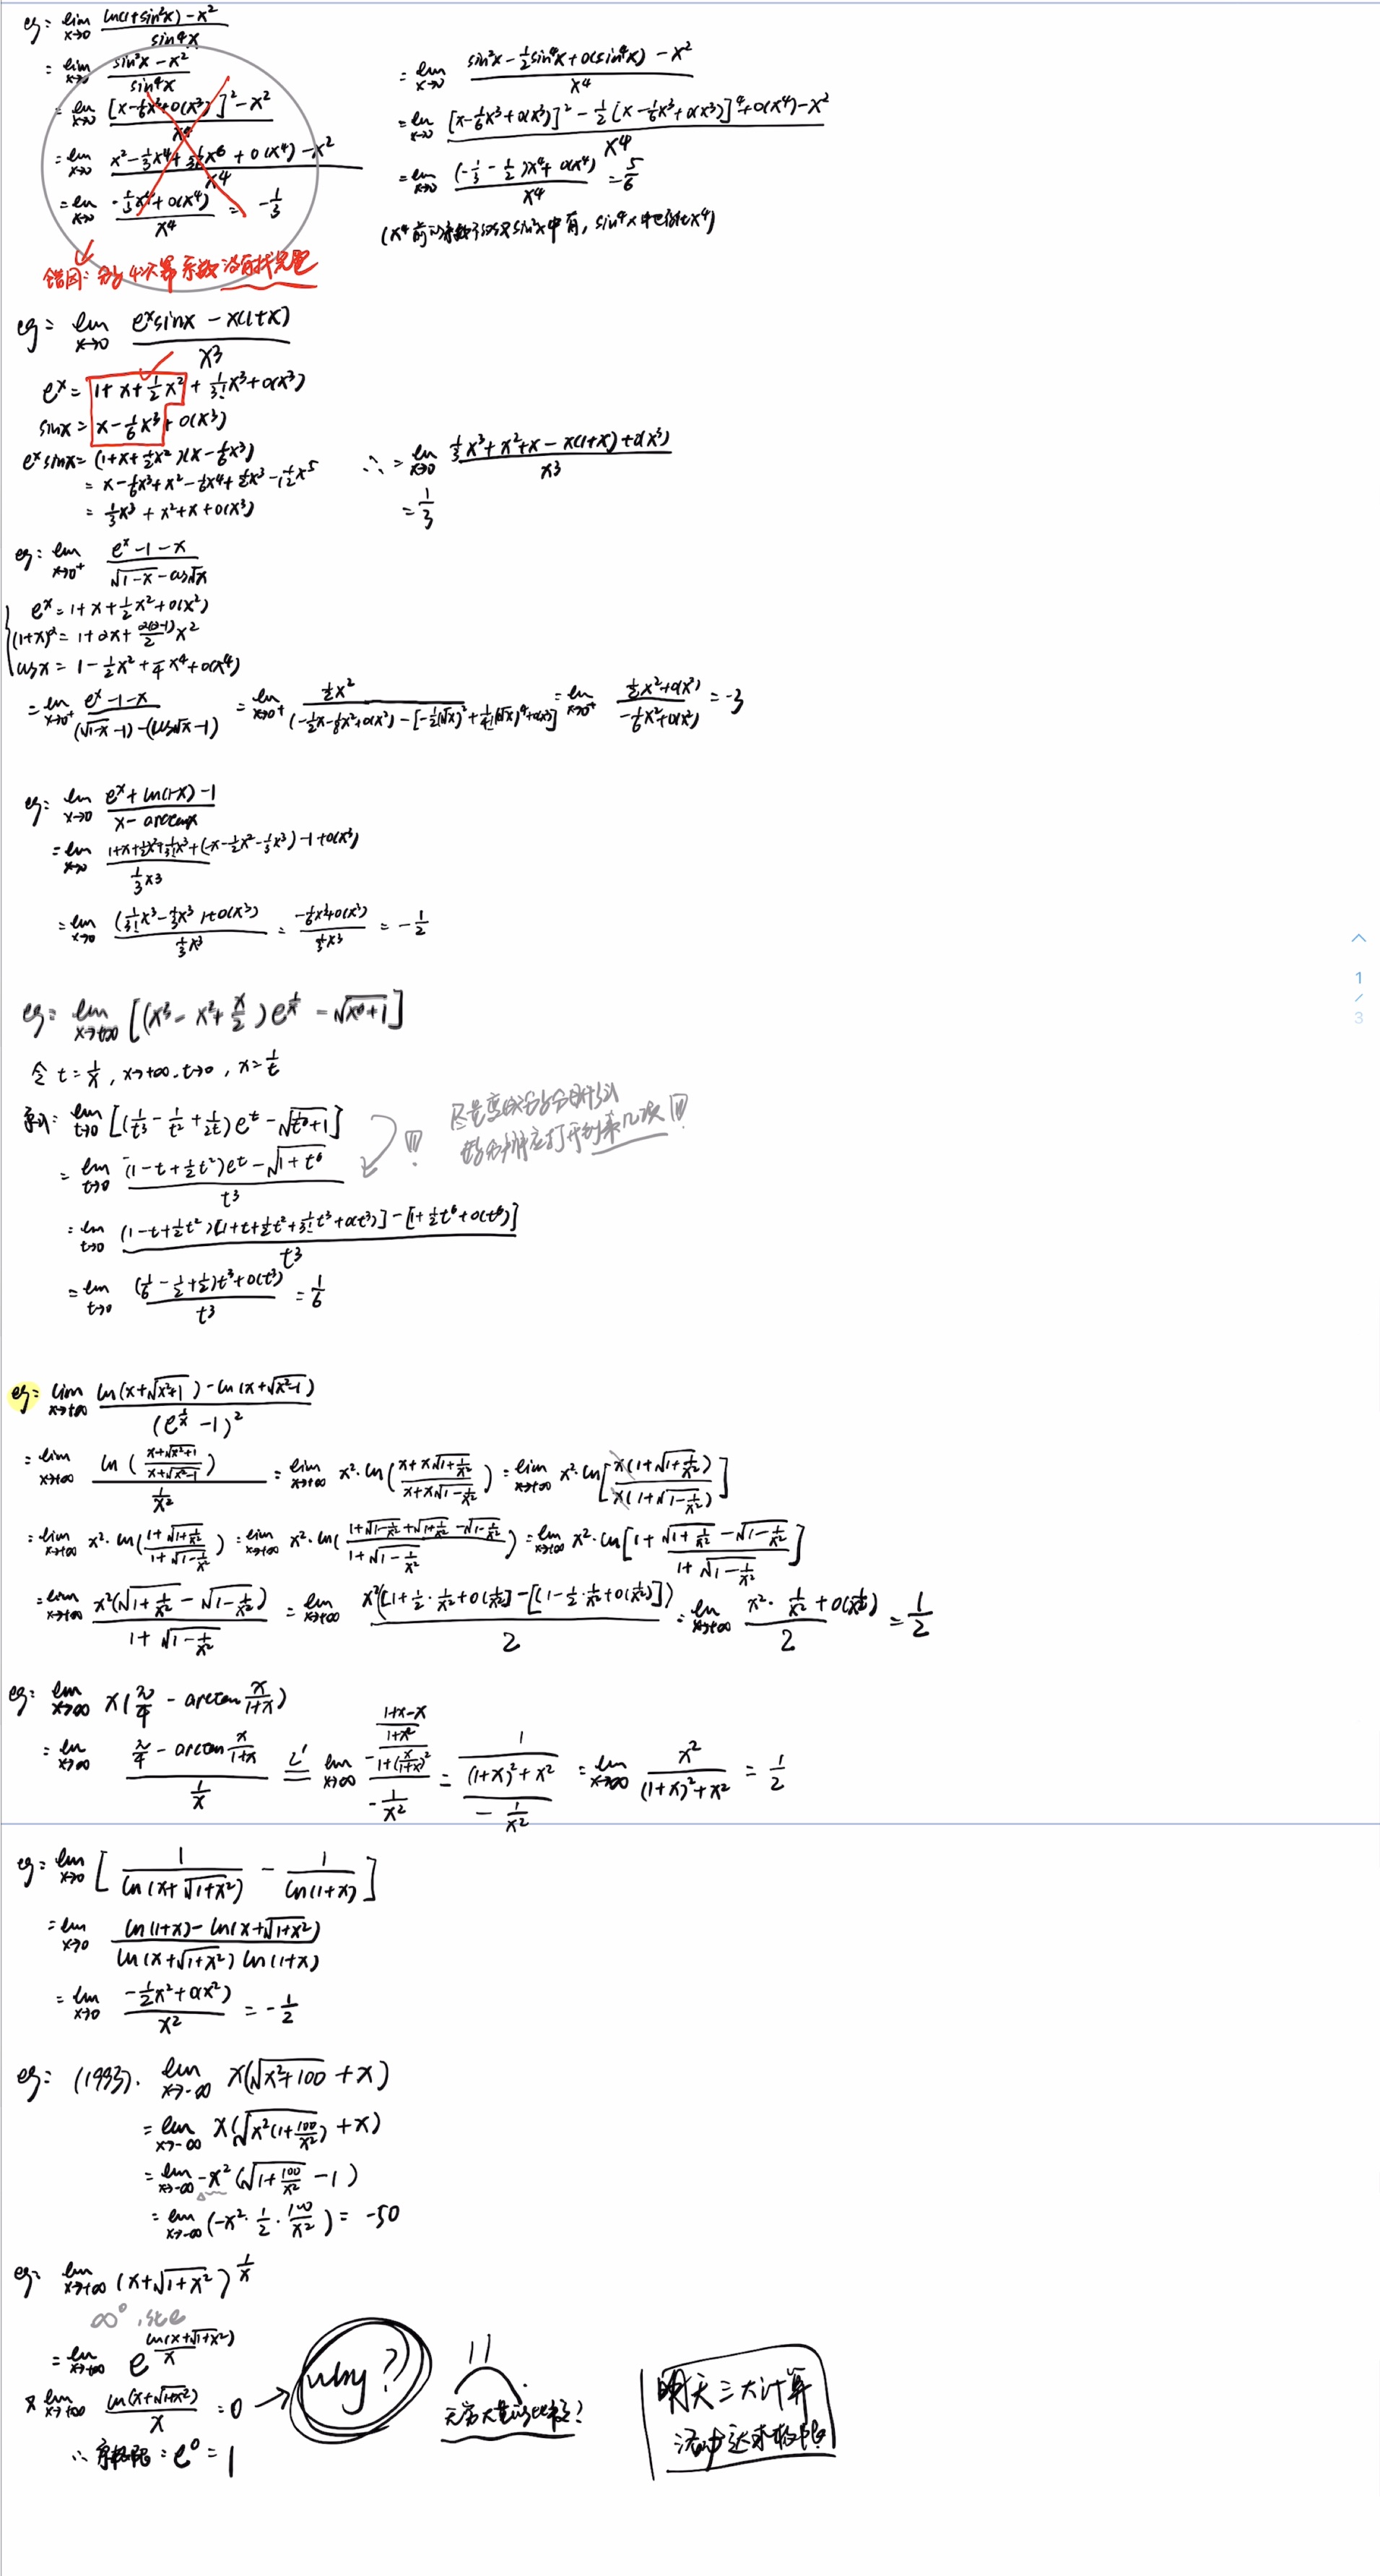 eg: lim x→0 (ln(1+sin²x) - x²)/(sin⁴x)
= lim x→0 (sin²x - x²)/(sin⁴x)
= lim x→0 ([x - 1/6x³ + o(x³)]² - x²)/x⁴
= lim x→0 (x² - 1/3x⁴ + 1/36x⁶ + o(x⁴) - x²)/x⁴
= lim x→0 (-1/3x⁴ + o(x⁴))/x⁴ = -1/3
错因: 分子4次幂系数没有找完
= lim x→0 (sin²x - 1/2sin⁴x + o(sin⁴x) - x²)/x⁴
= lim x→0 ([x - 1/6x³ + o(x³)]² - 1/2[x - 1/6x³ + o(x³)]⁴ + o(x⁴) - x²)/x⁴
= lim x→0 ((-1/3 - 1/2)x⁴ + o(x⁴))/x⁴ = 5/6
(x⁴前的系数不仅仅sin²x中有, sin⁴x中也有x⁴)
eg: lim x→0 (eˣsinx - x(1+x))/x³
eˣ = 1 + x + 1/2x² + 1/3!x³ + o(x³)
sinx = x - 1/6x³ + o(x³)
eˣsinx = (1+x+1/2x²)(x - 1/6x³)
= x - 1/6x³ + x² - 1/6x⁴ + 1/2x³ - 1/12x⁵
= 1/3x³ + x² + x + o(x³)
∴ = lim x→0 (1/3x³ + x² + x - x(1+x) + o(x³))/x³
= 1/3
eg: lim x→0⁺ (eˣ - 1 - x)/(√(1-x) - cos√x)
eˣ = 1 + x + 1/2x² + o(x²)
(1+x)^α = 1 + αx + α(α-1)/2 x²
cosx = 1 - 1/2x² + 1/4!x⁴ + o(x⁴)
= lim x→0⁺ (eˣ - 1 - x)/((√(1-x) - 1) - (cos√x - 1)) = lim x→0⁺ (1/2x²)/((-1/2x - 1/8x² + o(x²)) - [-1/2(√x)² + 1/4!(√x)⁴ + o(x²)]) = lim x→0⁺ (1/2x² + o(x²))/(-1/6x² + o(x²)) = -3
eg: lim x→0 (eˣ + ln(1-x) - 1)/(x - arctanx)
= lim x→0 (1 + x + 1/2x² + 1/3!x³ + (-x - 1/2x² - 1/3x³) - 1 + o(x³))/(1/3x³)
= lim x→0 ((1/3!x³ - 1/3x³) + o(x³))/(1/3x³) = (-1/6x³ + o(x³))/(1/3x³) = -1/2
eg: lim x→+∞ [(x³ - x² + x/2)e^(1/x) - √(x⁶+1)]
令 t = 1/x, x→+∞, t→0, x = 1/t
原式: lim t→0 [(1/t³ - 1/t² + 1/2t)eᵗ - √(1/t⁶+1)]
= lim t→0 ((1 - t + 1/2t²)eᵗ - √(1+t⁶))/t³
= lim t→0 ((1 - t + 1/2t²)[1 + t + 1/2t² + 1/3!t³ + o(t³)] - [1 + 1/2t⁶ + o(t⁶)])/t³
= lim t→0 ((1/6 - 1/2 + 1/2)t³ + o(t³))/t³ = 1/6
!!! 尽量变成分子分母形式
才好分辨应打开到第几次!!!
eg: lim x→+∞ (ln(x+√(x²+1)) - ln(x+√(x²-1)))/(e^(1/x) - 1)²
= lim x→+∞ ln((x+√(x²+1))/(x+√(x²-1)))/(1/x²) = lim x→+∞ x²·ln((x+x√(1+1/x²))/(x+x√(1-1/x²))) = lim x→+∞ x²·ln[x(1+√(1+1/x²))/(x(1+√(1-1/x²)))]
= lim x→+∞ x²·ln((1+√(1+1/x²))/(1+√(1-1/x²))) = lim x→+∞ x²·ln((1+√(1-1/x²)+√(1+1/x²)-√(1-1/x²))/(1+√(1-1/x²))) = lim x→+∞ x²·ln[1 + (√(1+1/x²)-√(1-1/x²))/(1+√(1-1/x²))]
= lim x→+∞ x²(√(1+1/x²) - √(1-1/x²))/(1+√(1-1/x²)) = lim x→+∞ x²([1+1/2·1/x²+o(1/x²)] - [(1-1/2·1/x²+o(1/x²)])/2 = lim x→+∞ (x²·1/x² + o(1/x²))/2 = 1/2
eg: lim x→∞ x(π/4 - arctan x/(1+x))
= lim x→∞ (π/4 - arctan x/(1+x))/(1/x) =L' lim x→∞ (-((1+x-x)/(1+x)²)/(1+(x/(1+x))²))/(-1/x²) = (1/((1+x)²+x²))/(-1/x²) = lim x→∞ x²/((1+x)²+x²) = 1/2
eg: lim x→0 [1/ln(x+√(1+x²)) - 1/ln(1+x)]
= lim x→0 (ln(1+x) - ln(x+√(1+x²)))/(ln(x+√(1+x²)) ln(1+x))
= lim x→0 (-1/2x² + o(x²))/x² = -1/2
eg: (1993). lim x→-∞ x(√(x²+100) + x)
= lim x→-∞ x(√(x²(1+100/x²)) + x)
= lim x→-∞ -x²(√(1+100/x²) - 1)
= lim x→-∞ (-x²·1/2·100/x²) = -50
eg: lim x→+∞ (x+√(1+x²))^(1/x)
= lim x→+∞ e^(ln(x+√(1+x²))/x)
又 lim x→+∞ ln(x+√(1+x²))/x = 0 → why?
无穷大量的比较?
∴ 原极限: e⁰ = 1
明天三大计算
1
/
3